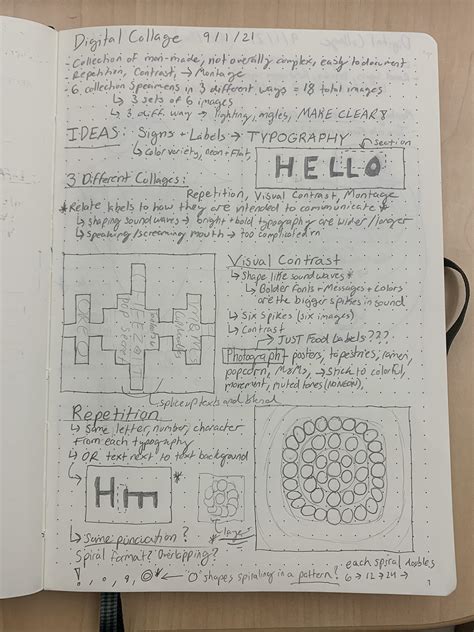 Digital Collage 9/1/21
- Collection of man-made, not overally complex, easy to document
- Repetition, Contrast, → Montage
- 6 collection specimens in 3 different ways = 18 total images
↳ 3 sets of 6 images
↳ 3 diff. way → lighting, angles, MAKE CLEAR
IDEAS: Signs + Labels → TYPOGRAPHY
↳ Color variety, neon + flat,
section
HELLO
3 Different Collages:
Repetition, Visual Contrast, Montage
*Relate labels to how they are intended to communicate*
↳ shaping soundwaves → bright + bold typography are wider/longer
↳ speaking/screaming mouth → too complicated rn
Visual Contrast
↳ Shape like soundwaves*
↳ Bolder Fonts + Messages + Colors
are the bigger spikes in sound
↳ Six Spikes (six images)
↳ Contrast
→ JUST Food Labels???
Photograph → posters, tapestries, ramen,
popcorn, M&Ms, → Stick to colorful,
movement, muted tones (NO NEON),
OREO
CHEEZ IT
Pop Secret
splice up texts and blend
Repetition
↳ Same letter, number, character
from each typography
↳ OR text next to text background
H E
large
↳ Same punctuation?
Spiral format? Overlapping?
! , 0, 9, ◎* "O" shapes spiraling in a pattern?
each spiral doubles
6 → 12 → 24 →
1